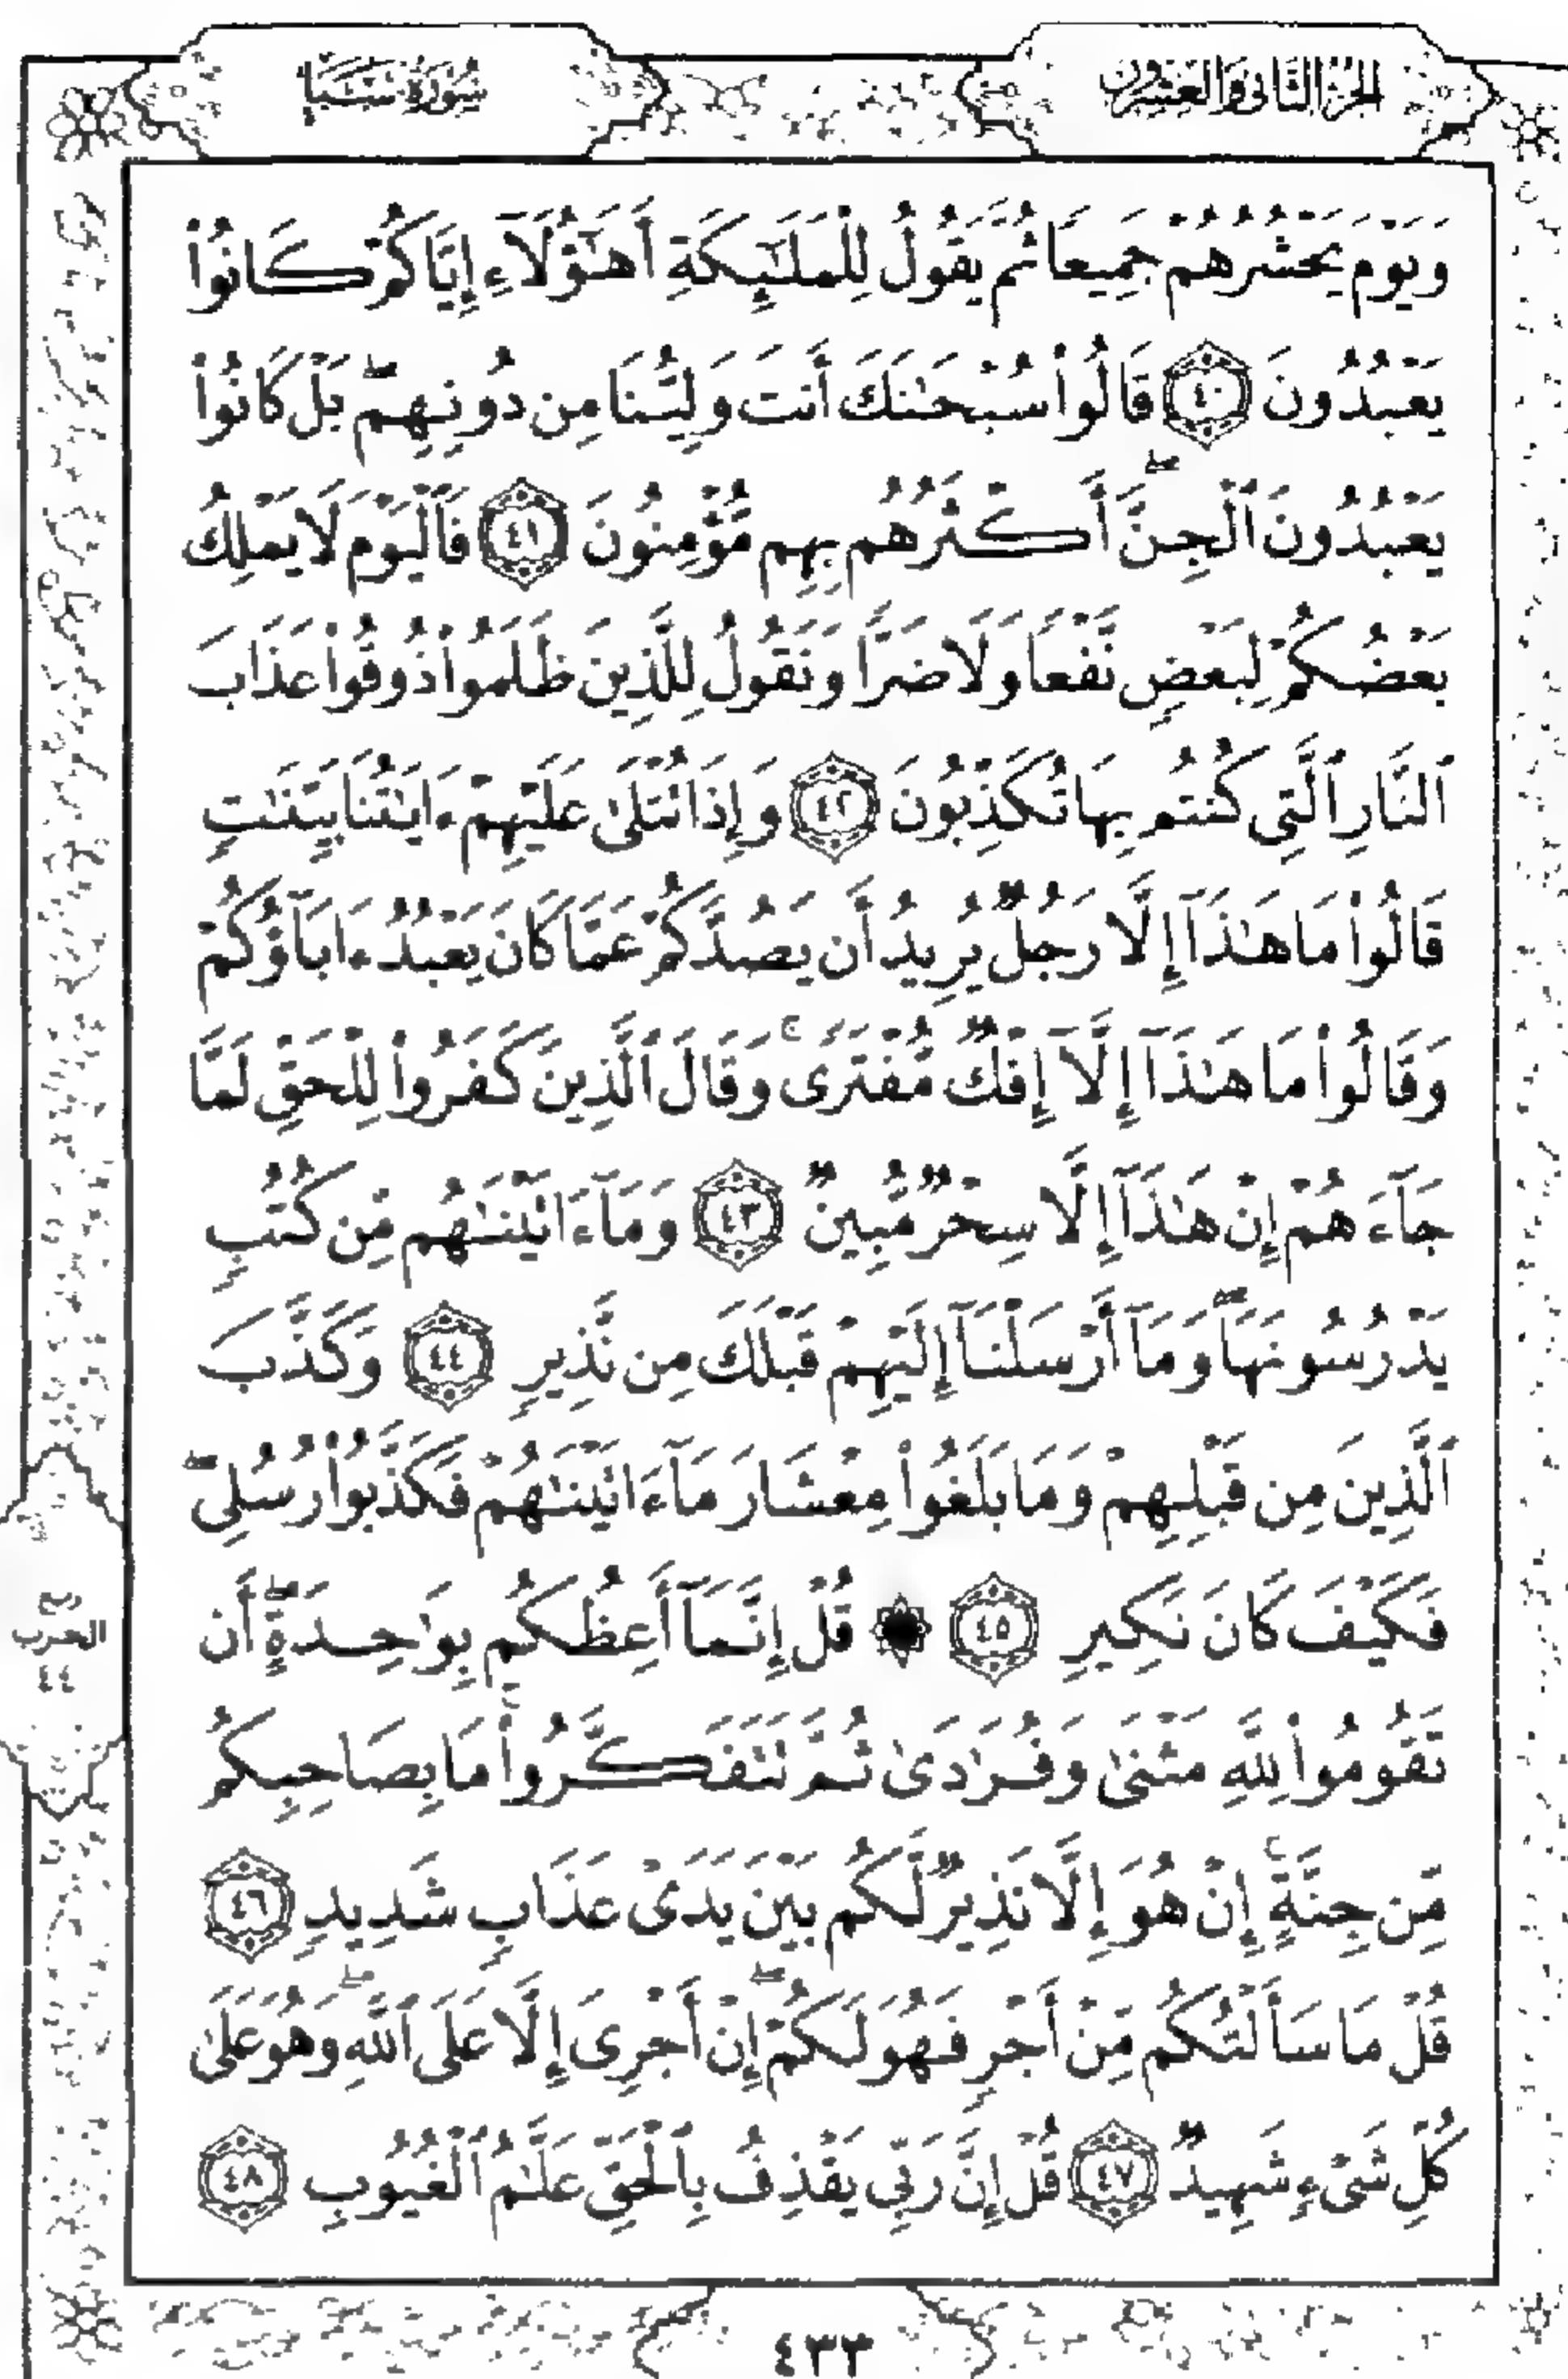 الجزء الثاني والعشرون
سورة سبإ
وَيَوْمَ يَحْشُرُهُمْ جَمِيعًا ثُمَّ يَقُولُ لِلْمَلَٰٓئِكَةِ أَهَٰٓؤُلَآءِ إِيَّاكُمْ كَانُوا۟
يَعْبُدُونَ ٤٠ قَالُوا۟ سُبْحَٰنَكَ أَنتَ وَلِيُّنَا مِن دُونِهِم ۖ بَلْ كَانُوا۟
يَعْبُدُونَ ٱلْجِنَّ ۖ أَكْثَرُهُم بِهِم مُّؤْمِنُونَ ٤١ فَٱلْيَوْمَ لَا يَمْلِكُ
بَعْضُكُمْ لِبَعْضٍ نَّفْعًا وَلَا ضَرًّا وَنَقُولُ لِلَّذِينَ ظَلَمُوا۟ ذُوقُوا۟ عَذَابَ
ٱلنَّارِ ٱلَّتِى كُنتُم بِهَا تُكَذِّبُونَ ٤٢ وَإِذَا تُتْلَىٰ عَلَيْهِمْ ءَايَٰتُنَا بَيِّنَٰتٍ
قَالُوا۟ مَا هَٰذَآ إِلَّا رَجُلٌ يُرِيدُ أَن يَصُدَّكُمْ عَمَّا كَانَ يَعْبُدُ ءَابَآؤُكُمْ
وَقَالُوا۟ مَا هَٰذَآ إِلَّآ إِفْكٌ مُّفْتَرًى ۚ وَقَالَ ٱلَّذِينَ كَفَرُوا۟ لِلْحَقِّ لَمَّا
جَآءَهُمْ إِنْ هَٰذَآ إِلَّا سِحْرٌ مُّبِينٌ ٤٣ وَمَآ ءَاتَيْنَٰهُم مِّن كُتُبٍ
يَدْرُسُونَهَا ۖ وَمَآ أَرْسَلْنَآ إِلَيْهِمْ قَبْلَكَ مِن نَّذِيرٍ ٤٤ وَكَذَّبَ
ٱلَّذِينَ مِن قَبْلِهِمْ وَمَا بَلَغُوا۟ مِعْشَارَ مَآ ءَاتَيْنَٰهُمْ فَكَذَّبُوا۟ رُسُلِى ۖ
فَكَيْفَ كَانَ نَكِيرِ ٤٥ ۞ قُلْ إِنَّمَآ أَعِظُكُم بِوَٰحِدَةٍ ۖ أَن
تَقُومُوا۟ لِلَّهِ مَثْنَىٰ وَفُرَٰدَىٰ ثُمَّ تَتَفَكَّرُوا۟ ۚ مَا بِصَاحِبِكُم
مِّن جِنَّةٍ ۚ إِنْ هُوَ إِلَّا نَذِيرٌ لَّكُم بَيْنَ يَدَىْ عَذَابٍ شَدِيدٍ ٤٦
قُلْ مَا سَأَلْتُكُم مِّنْ أَجْرٍ فَهُوَ لَكُمْ ۖ إِنْ أَجْرِىَ إِلَّا عَلَى ٱللَّهِ ۖ وَهُوَ عَلَىٰ
كُلِّ شَىْءٍ شَهِيدٌ ٤٧ قُلْ إِنَّ رَبِّى يَقْذِفُ بِٱلْحَقِّ عَلَّٰمُ ٱلْغُيُوبِ ٤٨
الحزب
٤٤
٤٣٣